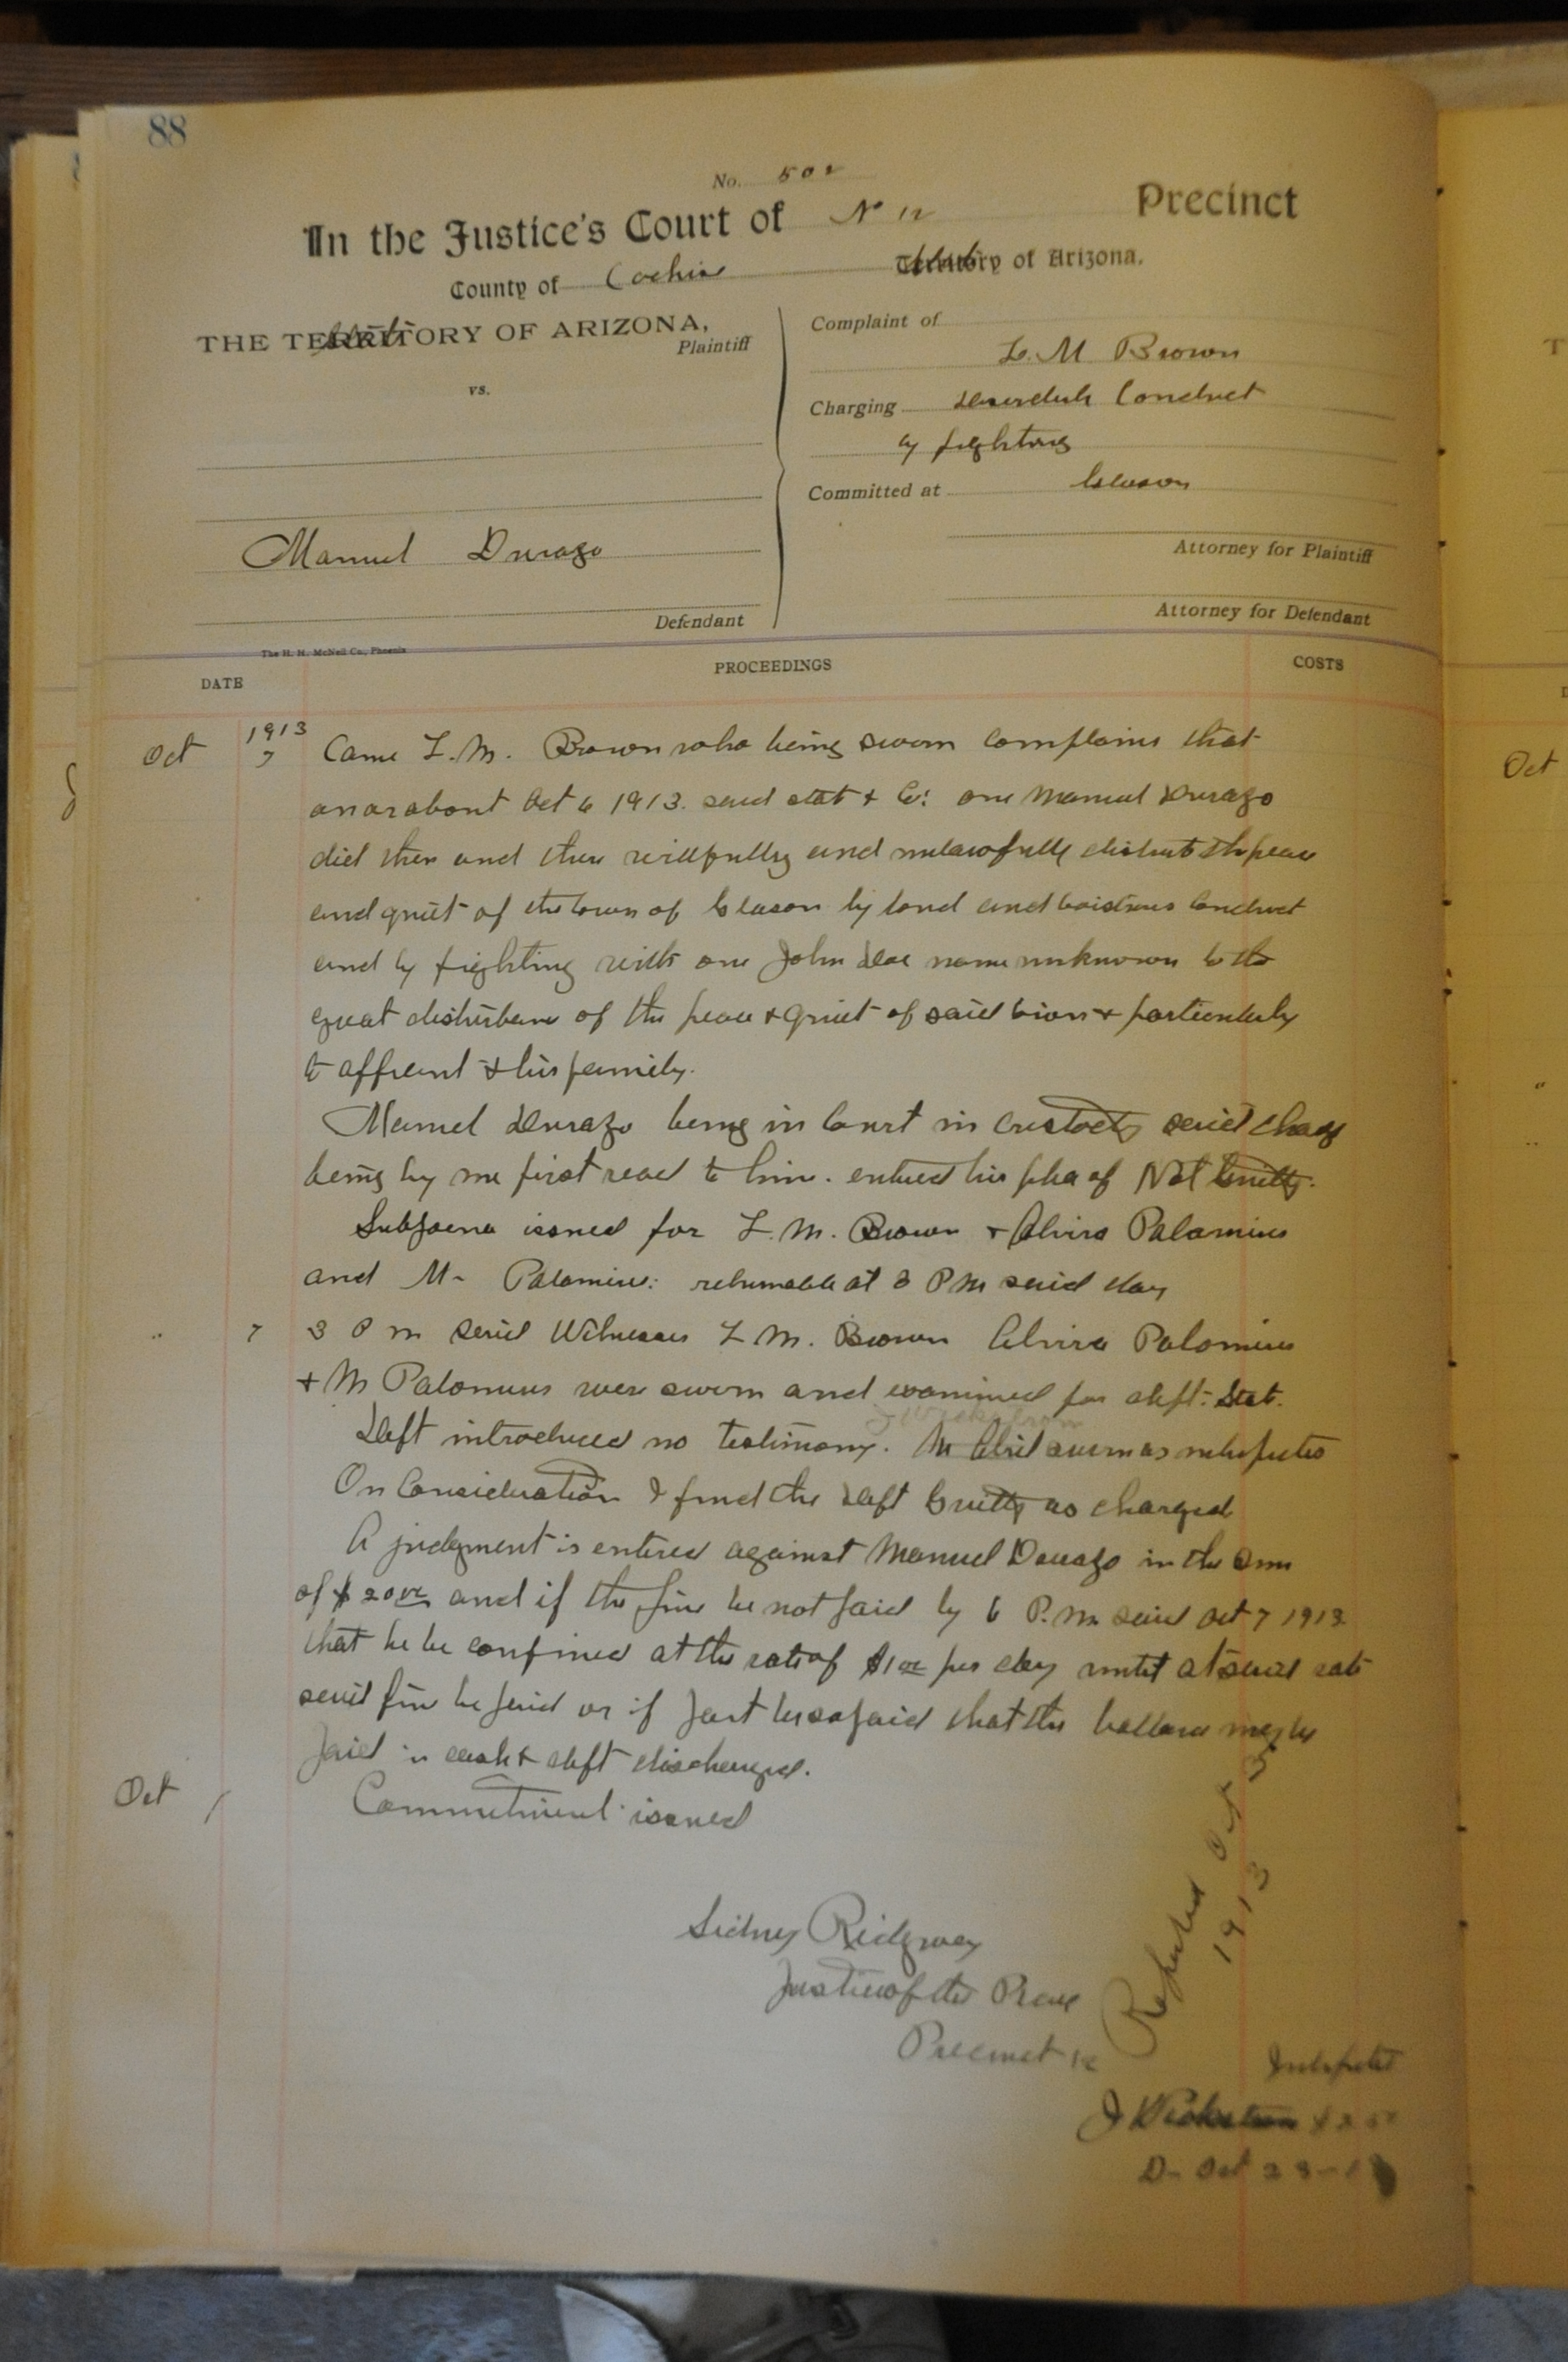 88
No. 502
In the Justice's Court of No 12 Precinct
County of Cochise Territory of Arizona.
State
THE TERRITORY OF ARIZONA,
State
Plaintiff
vs.
Manuel Durazo
Defendant
Complaint of
L. M Brown
Charging Disorderly Conduct
by fighting
Committed at Gleason
Attorney for Plaintiff
Attorney for Defendant
The H. H. McNeil Co., Phoenix
DATE PROCEEDINGS COSTS
1913
Oct 7 Came L. M. Brown who being sworn complains that
on or about Oct 6 1913. said stat & Co: one Manuel Durazo
did then and there willfully and unlawfully disturb the peace
and quiet of the town of Gleason by loud and boistrous Conduct
and by fighting with one John Doe name unknown to the
great disturbance of the peace & quiet of said town & particularly
to affiant & his family.
Manuel Durazo being in Court in custody said charge
being by me first read to him. entered his plea of Not Guilty.
Subpoena issued for L. M. Brown & Elvira Palomino
and M Palomino: returnable at 3 P M said day
" 7 3 P m said Witnesses L M. Brown Elvira Palomino
& M Palomino were sworn and examined for deft: Stat.
J Wickstrom
Deft introduced no testimony. sworn as interpreter
On Consideration I find the Deft Guilty as charged
A judgment is entered against Manuel Durazo in the Sum
of $20 00 and if the fine be not paid by 6 P.M. said Oct 7 1913
that he be confined at the rate of $1 00 per day until at said rate
said fine be paid or if part be so paid that the ballance may be
paid in cash & deft discharged.
Oct / Commitment issued
Sidney Ridgway
Justice of the Peace
Precinct 12
Reported Oct 3
1913
Interpreter
J Wickstrom
Oct 28-13
Oct